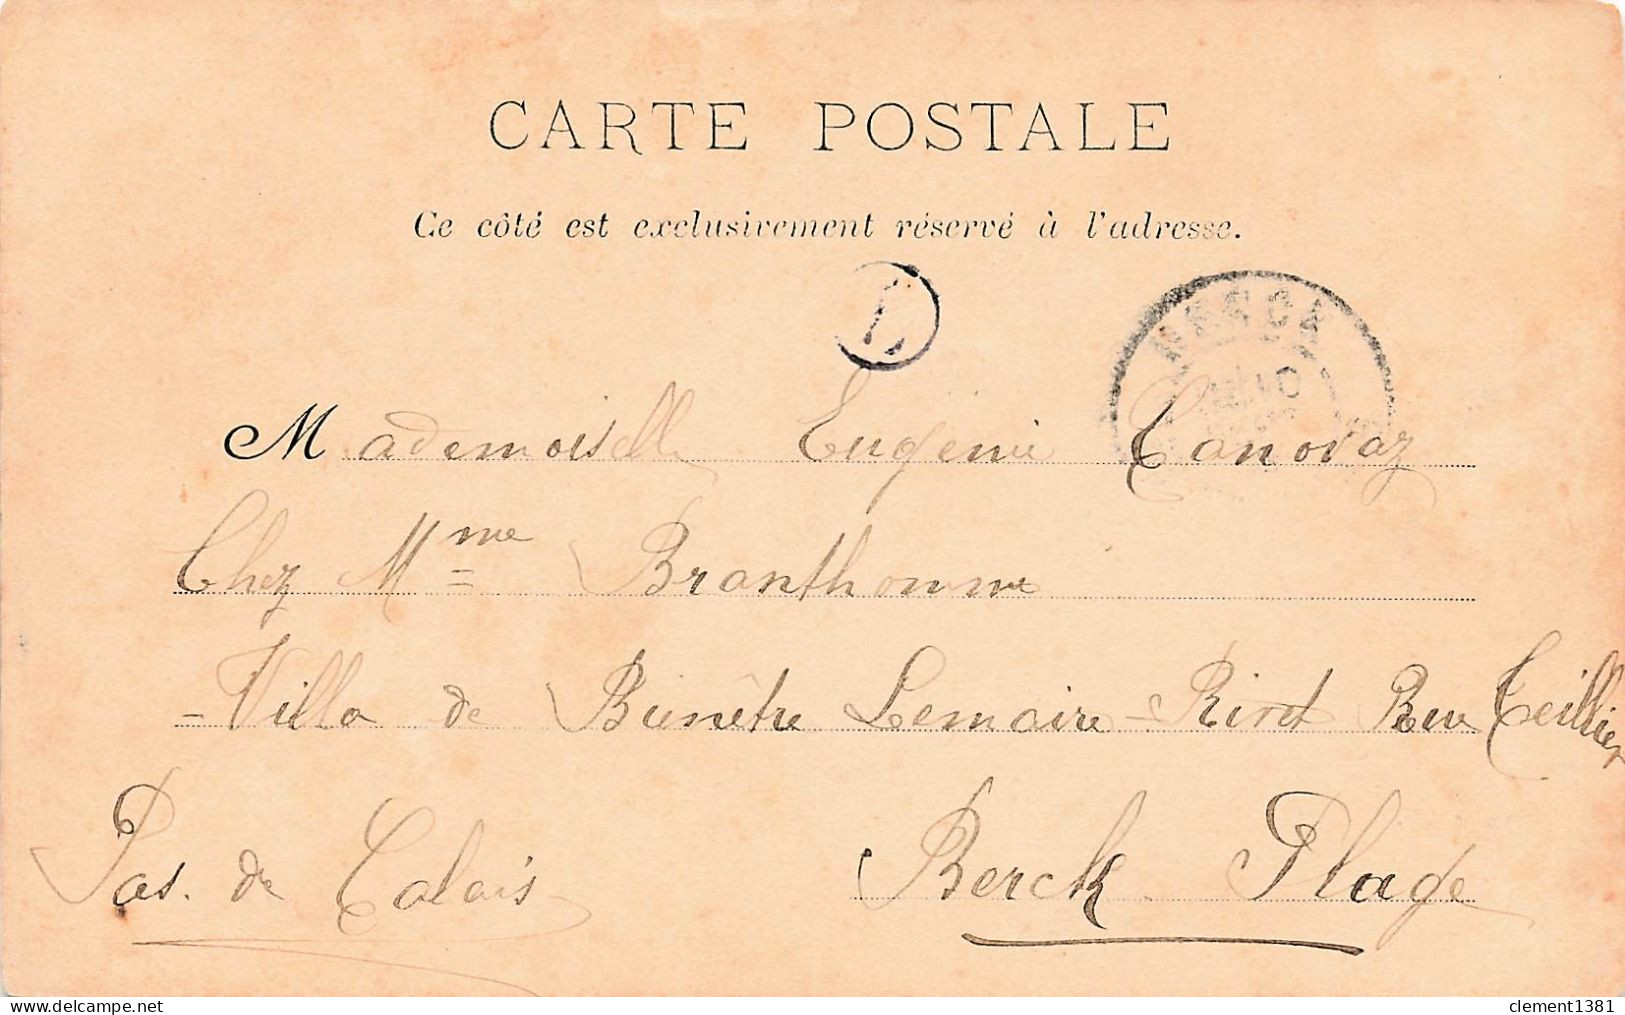 CARTE POSTALE
Ce côté est exclusivement réservé à l'adresse.
L
BERCK
Mademoiselle Eugénie Canovaz
Chez Mme Branthomme
- Villa de Bienêtre Lemaire - Rivet Rue Teillier
Pas. de Calais Berck Plage
delcampe.net
clement1381